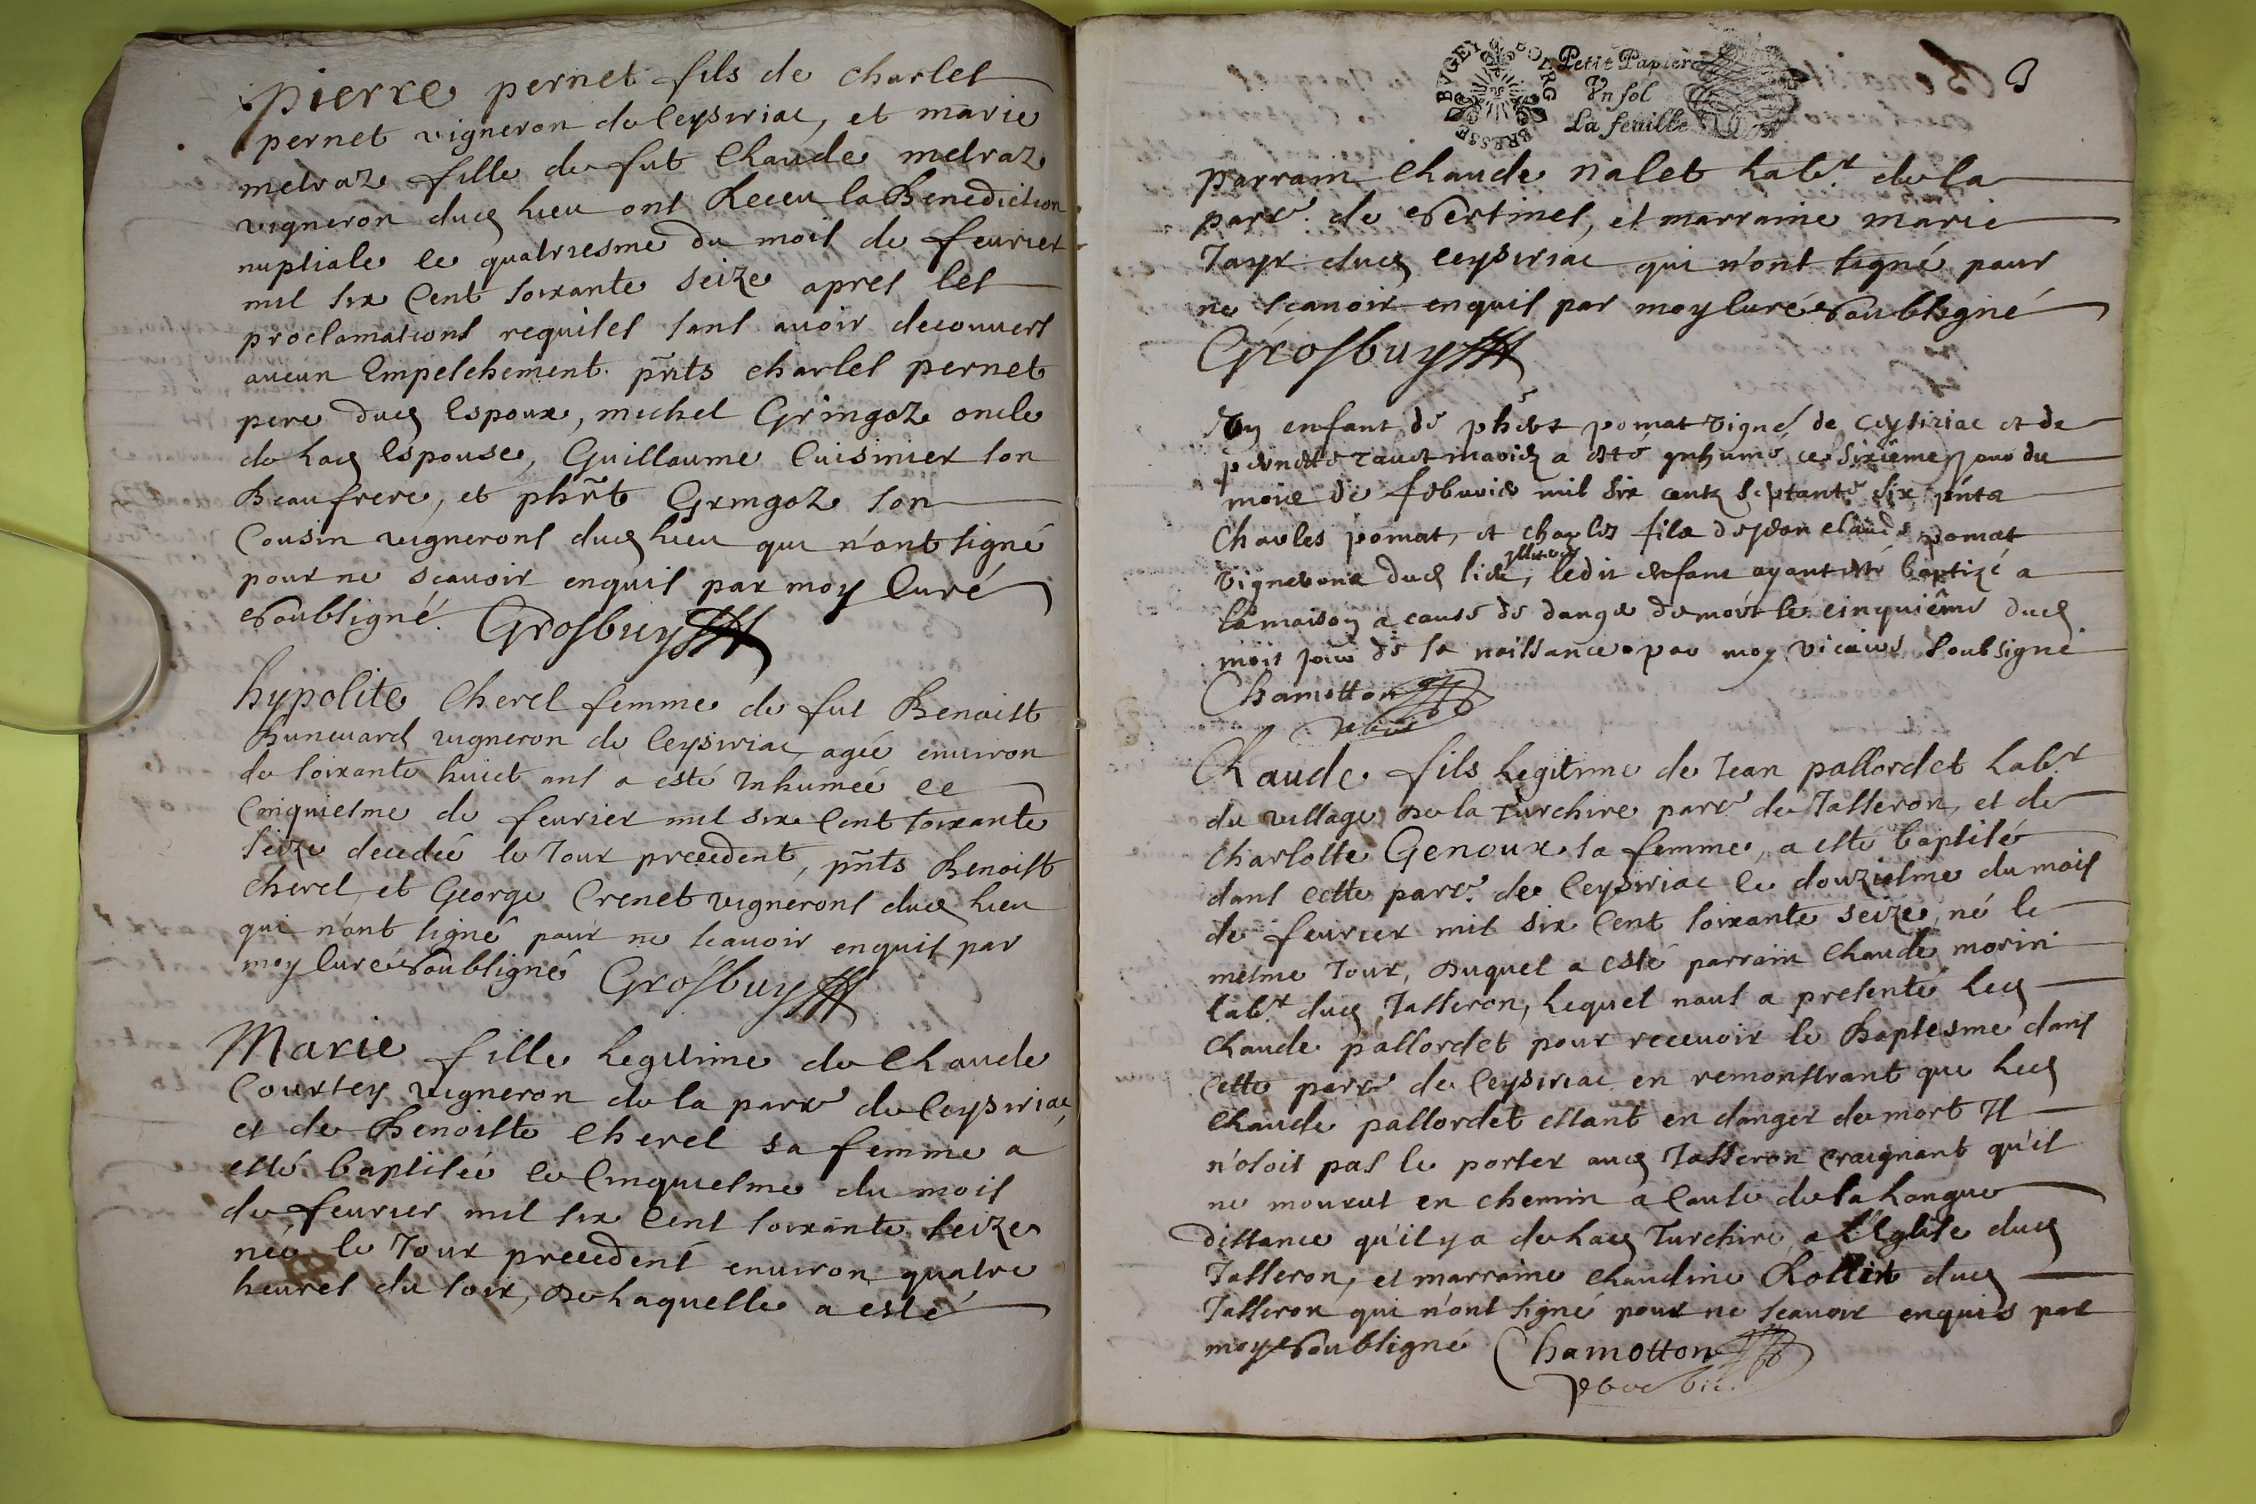 pierre pernet fils de charles
pernet vigneron de Ceysiriac, et marie
melraz fille de fut Claude melraz
vigneron dud lieu ont Receu la Benediction
nuptiale le quatriesme du mois de feurier
mil six Cent soixante seize apres les
proclamations requises sans auoir decouuert
aucun Empeschement. pñts charles pernet
pere dud Espoux, michel Gringoz oncle
de lad Espouse, Guillaume Cuisinier son
Beaufrere, et phñt Gringoz son
Cousin vignerons dud lieu qui n'ont signé
pour ne scauoir enquis par moy Curé
soubsigné. Grosbuy
hypolite Cherel femme de fut Benoist
vigneron de Ceysiriac, agée enuiron
de soixante huict ans a esté Inhumée le
Cinquiesme de feurier mil six Cent soixante
seize decedée le Jour precedent, pñts Benoist
cherel, et George Crenet vignerons dud lieu
qui n'ont signé pour ne scauoir enquis par
moy Curé soubsigné Grosbuy
Marie fille legitime de Claude
Courtey vigneron de la parr de Ceysiriac,
et de Benoiste Cherel sa femme a
esté baptisée le Cinquiesme du mois
de feurier mil six Cent soixante seize
née le Jour precedent enuiron quatre
heures du soir, de laquelle a esté
BVGEY BOVRG BRESSE
Petit Papier
Vn sol
La feuille
3
parrain Claude nalet labr de la
parr. de sertines, et marraine marie
Jayr dud Ceysiriac qui n'ont signé pour
ne scauoir enquis par moy Curé soubsigné
Grosbuy
Vn enfant de phbt pomat vigné de Ceysiriac et de
pernette mariez a esté ynhumé ce sixiême jour du
mois de februier mil six centz septante six pnts
Charles pomat, et charles filz de jean claude pomat
vignerons dud lieu, illiterez ledit enfant ayant esté baptizé a
la maison a cause de danger de mort le cinquiême dud
mois jour de sa naissance par moy vicaire soubsigné
Chamotton
Claude fils legitime de Jean pallordet labr
du village de la Turchire parr de Jasseron, et de
charlotte Genoux sa femme, a esté baptisé
dans cette parr. de Ceysiriac le douziesme du mois
de feurier mil six Cent soixante seize, né le
mesme Jour, duquel a esté parrain Claude morin
labr dud Jasseron, lequel nous a presenté led
Claude pallordet pour recevoir le Baptesme dans
cette parr de Ceysiriac en remonstrant que led
Claude pallordet estant en danger de mort Il
n'osoit pas le porter aud Jasseron craignant qu'il
ne mourut en chemin a Cause de la longue
distance qu'il y a de lad Turchire a l'Eglise dud
Jasseron, et marraine Claudine Rollet dud
Jasseron qui n'ont signé pour ne scauoir enquis par
moy soubsigné Chamotton